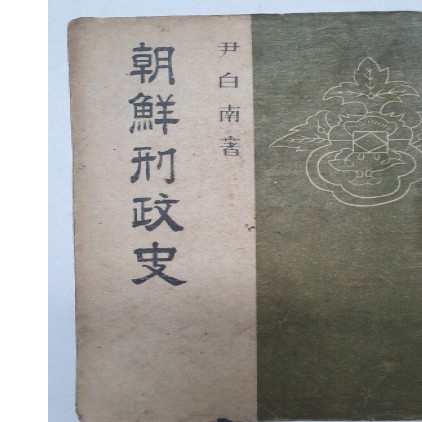 尹白南著
朝鮮刑政史